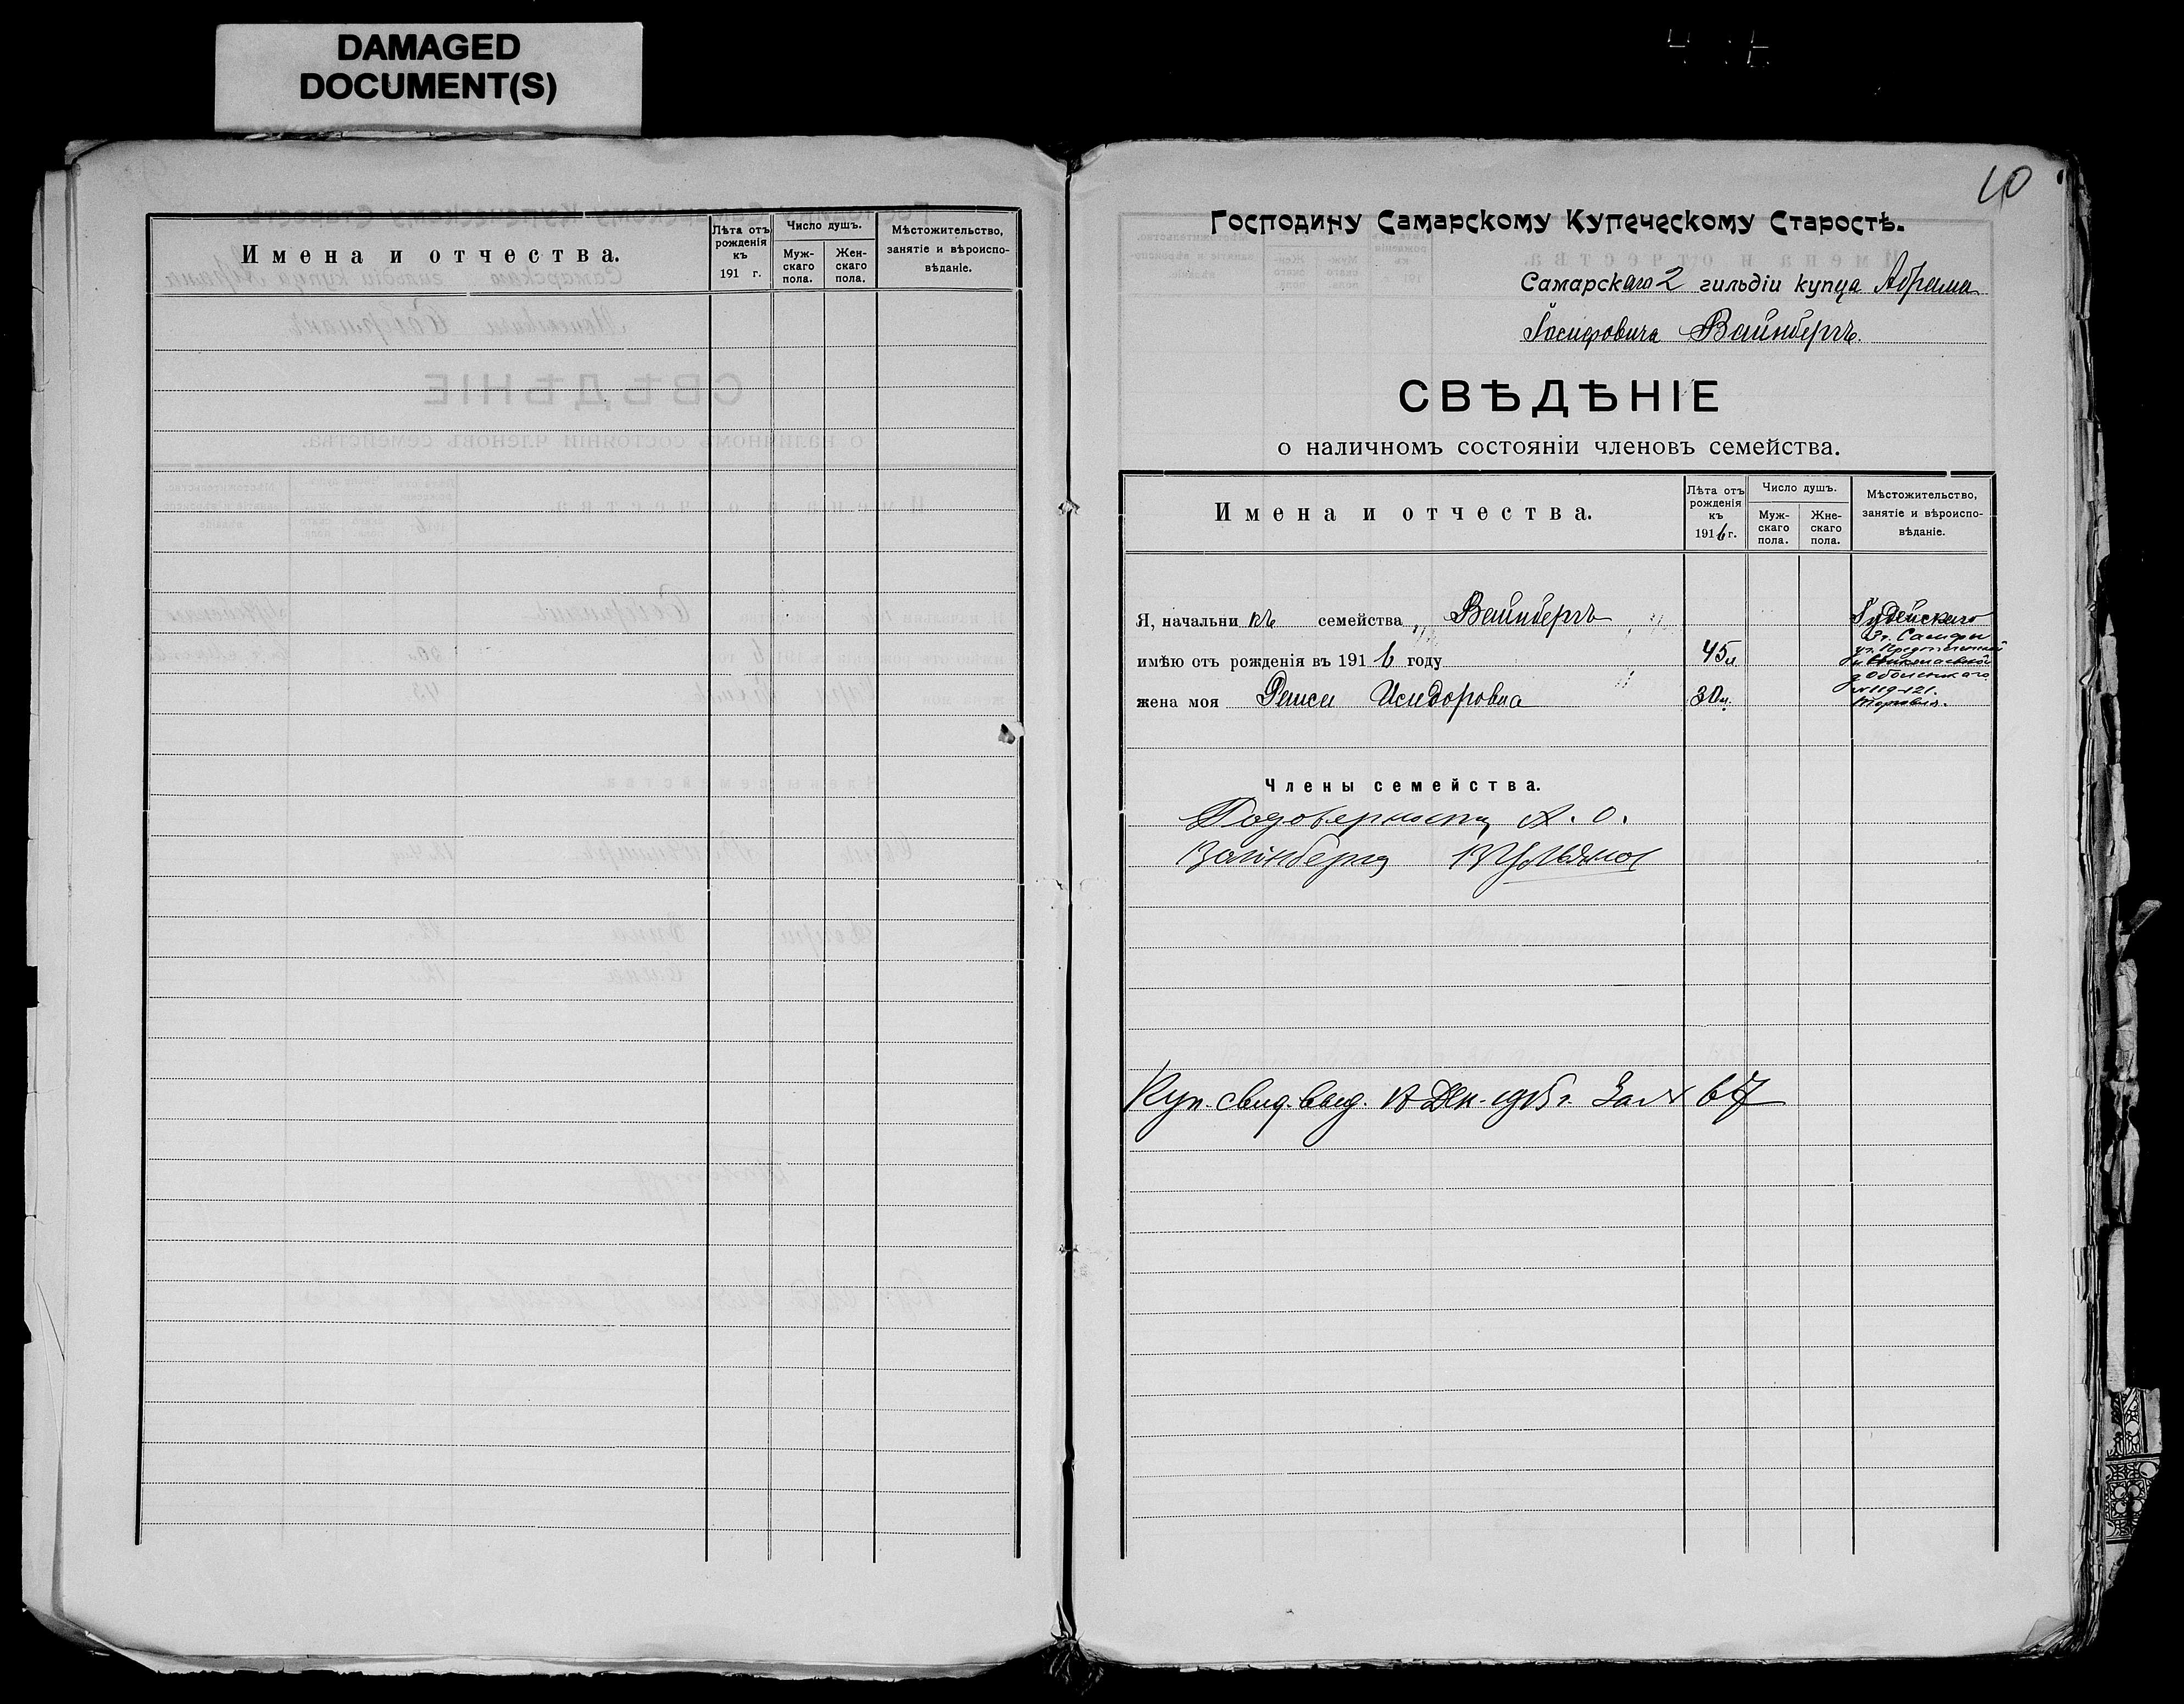 DAMAGED
DOCUMENT(S)
Имена и отчества.
Лѣта отъ рожденія къ 191 г.
Число душъ.
Муж-скаго пола.
Жен-скаго пола.
Мѣстожительство, занятіе и вѣроиспо-вѣданіе.
10
Господину Самарскому Купеческому Старостѣ.
Самарскаго 2 гильдіи купца Абрама
Іосифовича Вайнбергъ.
СВѢДѢНІЕ
о наличномъ состояніи членовъ семейства.
Имена и отчества.
Лѣта отъ рожденія къ 1916 г.
Число душъ.
Муж-скаго пола.
Жне-скаго пола.
Мѣстожительство, занятіе и вѣроиспо-вѣданіе.
Я, начальникъ семейства Вайнбергъ
Іудейскаго
имѣю отъ рожденія въ 1916 году 45л
г. Самара
жена моя Исидоровна 30л.
№ 119-121.
торговля.
Члены семейства.
А. О.
Вайнберга
Куп. свид. выд. Дек. 1915 г. За № 67